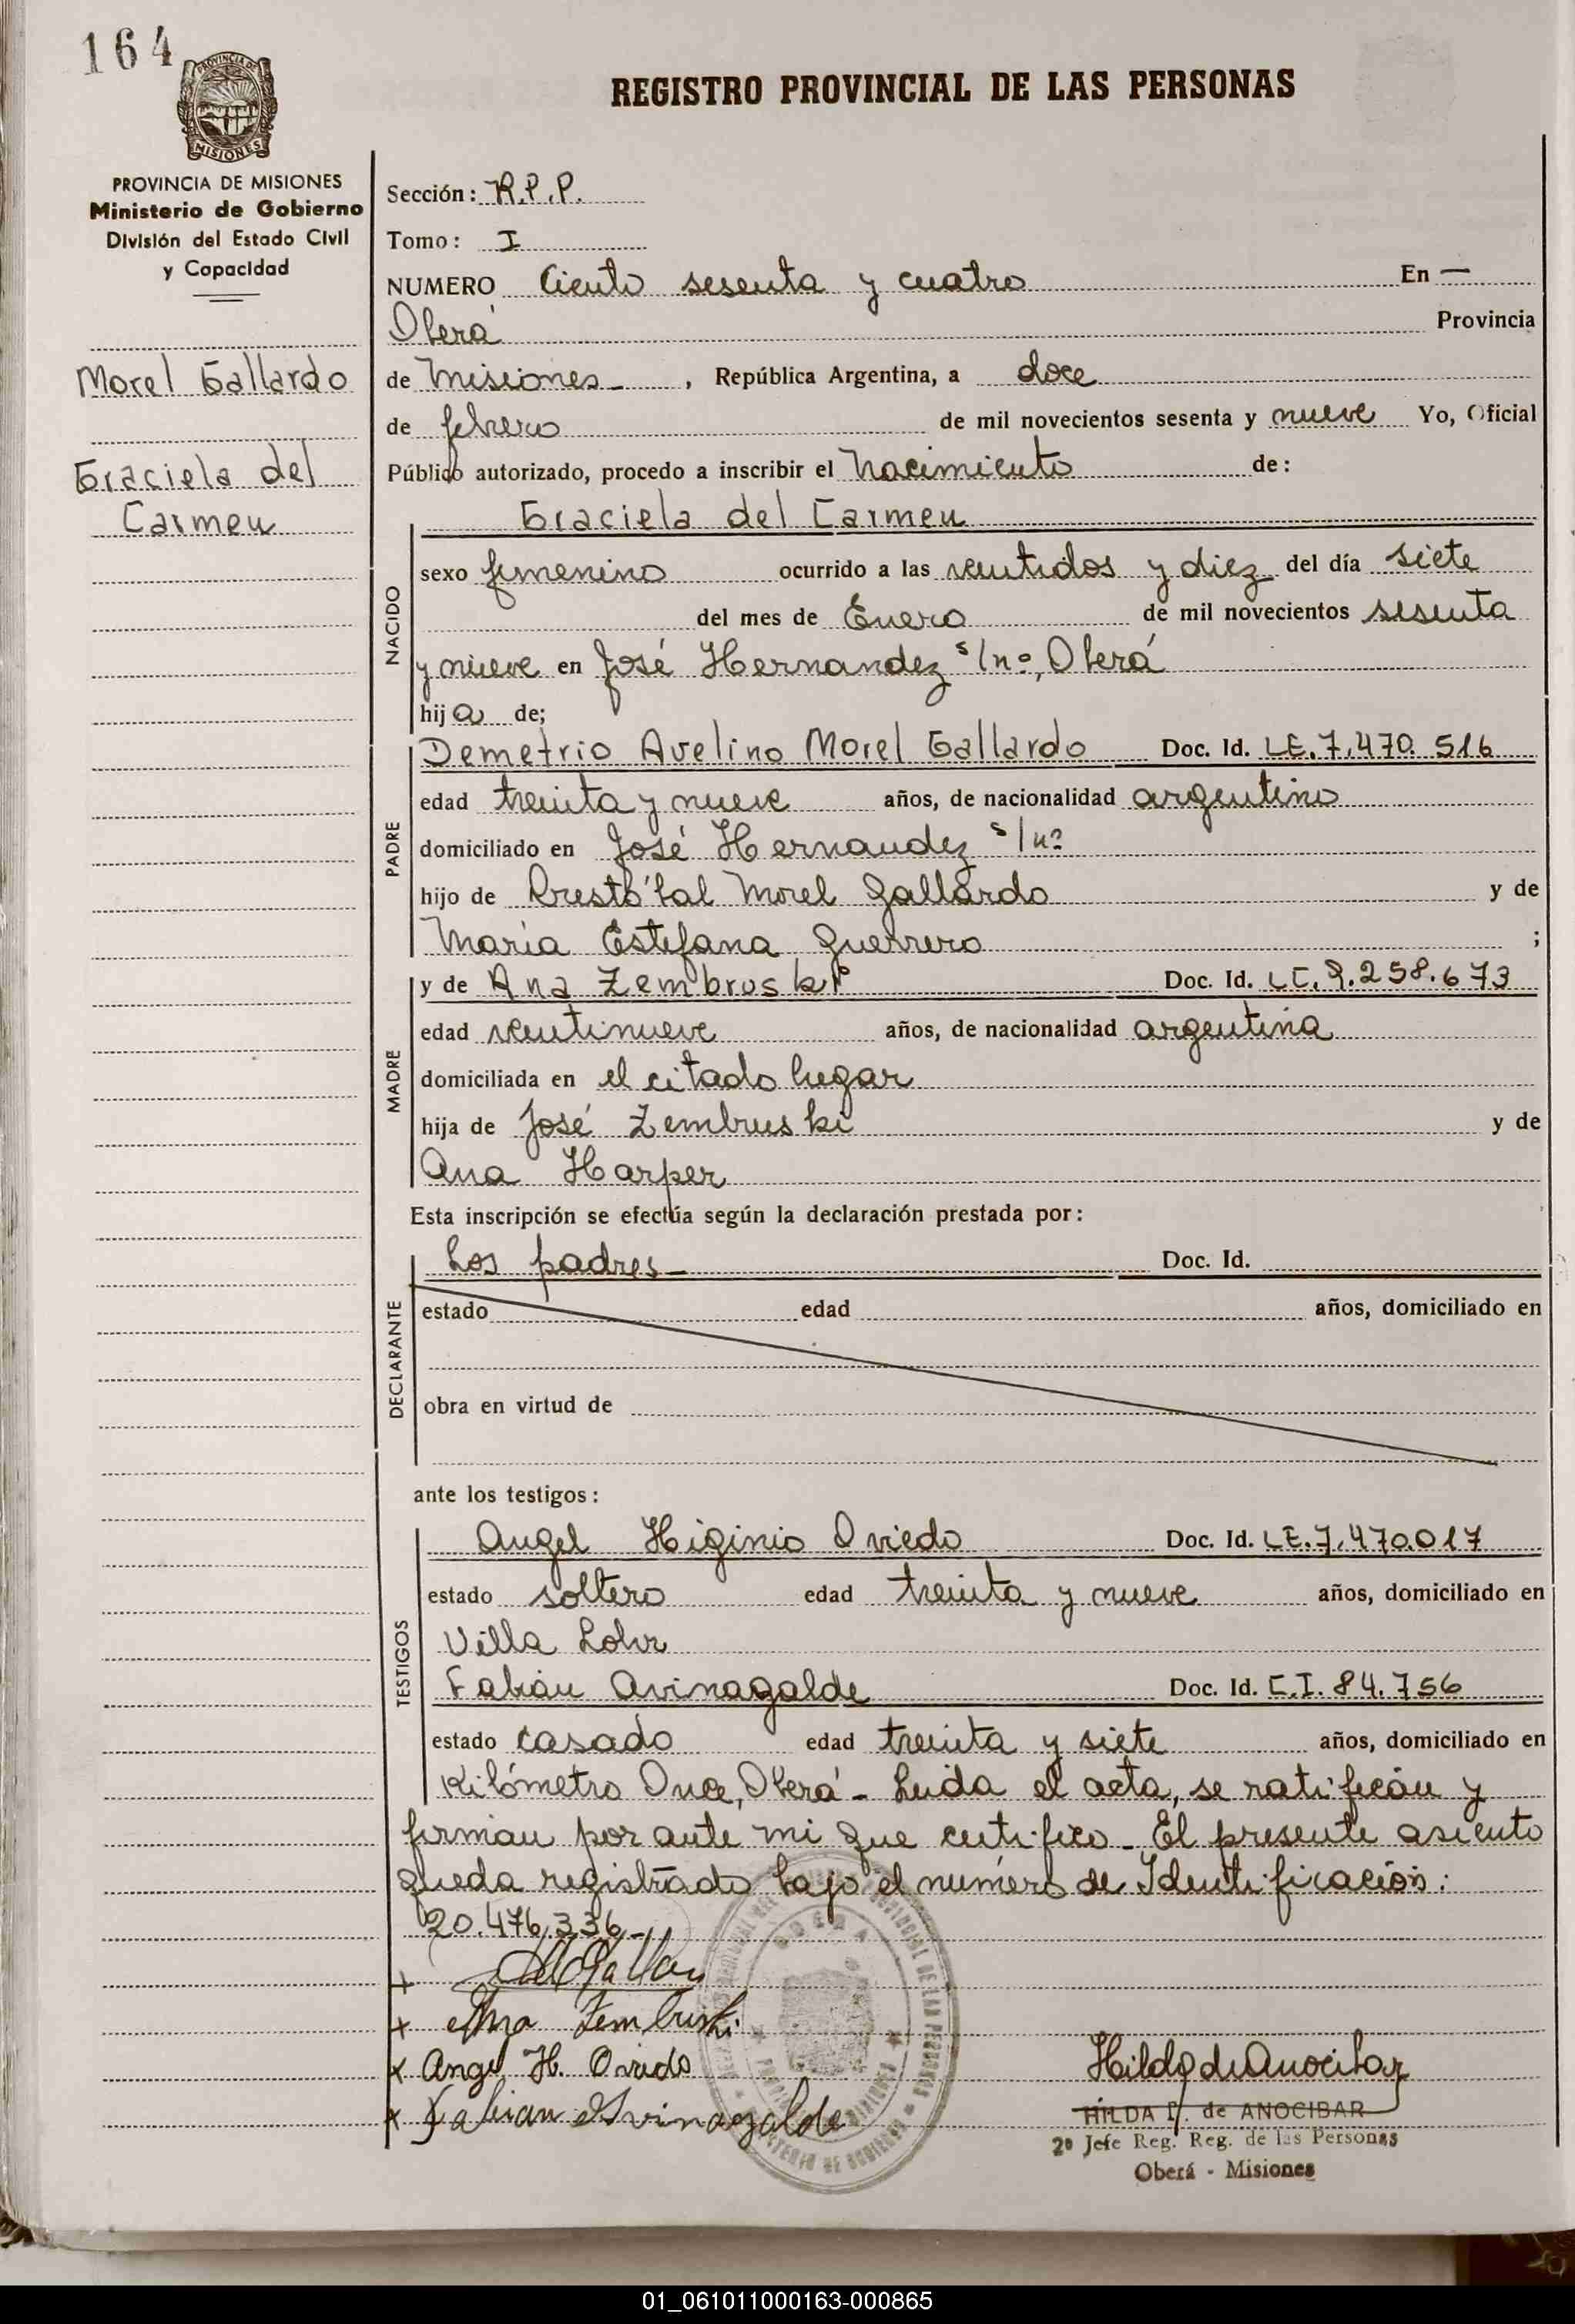 164
PROVINCIA DE
MISIONES
REGISTRO PROVINCIAL DE LAS PERSONAS
PROVINCIA DE MISIONES
Ministerio de Gobierno
División del Estado Civil
y Capacidad
Morel Gallardo
Graciela del
Carmen
Sección: R.P.P.
Tomo: I
NUMERO Ciento sesenta y cuatro En —
Oberá Provincia
de Misiones - , República Argentina, a doce
de febrero de mil novecientos sesenta y nueve Yo, Oficial
Público autorizado, procedo a inscribir el Nacimiento de:
Graciela del Carmen
NACIDO
sexo femenino ocurrido a las veintidos y diez del día siete
del mes de Enero de mil novecientos sesenta
y nueve en José Hernandez s/nº, Oberá
hija de;
PADRE
Demetrio Avelino Morel Gallardo Doc. Id. L.E. 7.470.516
edad treinta y nueve años, de nacionalidad argentino
domiciliado en José Hernandez s/nº
hijo de Cristóbal Morel Gallardo y de
María Estefana Guerrero ;
MADRE
y de Ana Zembruski Doc. Id. L.C. 9.258.673
edad veintinueve años, de nacionalidad argentina
domiciliada en el citado lugar
hija de José Zembruski y de
Ana Harper
Esta inscripción se efectúa según la declaración prestada por:
DECLARANTE
Los padres - Doc. Id.
estado edad años, domiciliado en
obra en virtud de
ante los testigos:
TESTIGOS
Angel Higinio Oviedo Doc. Id. L.E. 7.470.017
estado soltero edad treinta y nueve años, domiciliado en
Villa Lohr
Fabián Avinagalde Doc. Id. C.I. 84.756
estado casado edad treinta y siete años, domiciliado en
Kilómetro Once, Oberá - Leida el acta, se ratificán y
firman por ante mi que certifico - El presente asiento
queda registrado bajo el número de Identificación:
20.476.336 -
+
+ Ana Zembruski
x Angel H. Oviedo
x Fabian Avinagalde
Hilda de Anocibar
HILDA P. de ANOCIBAR
2º Jefe Reg. Reg. de las Personas
Oberá - Misiones
01_061011000163-000865